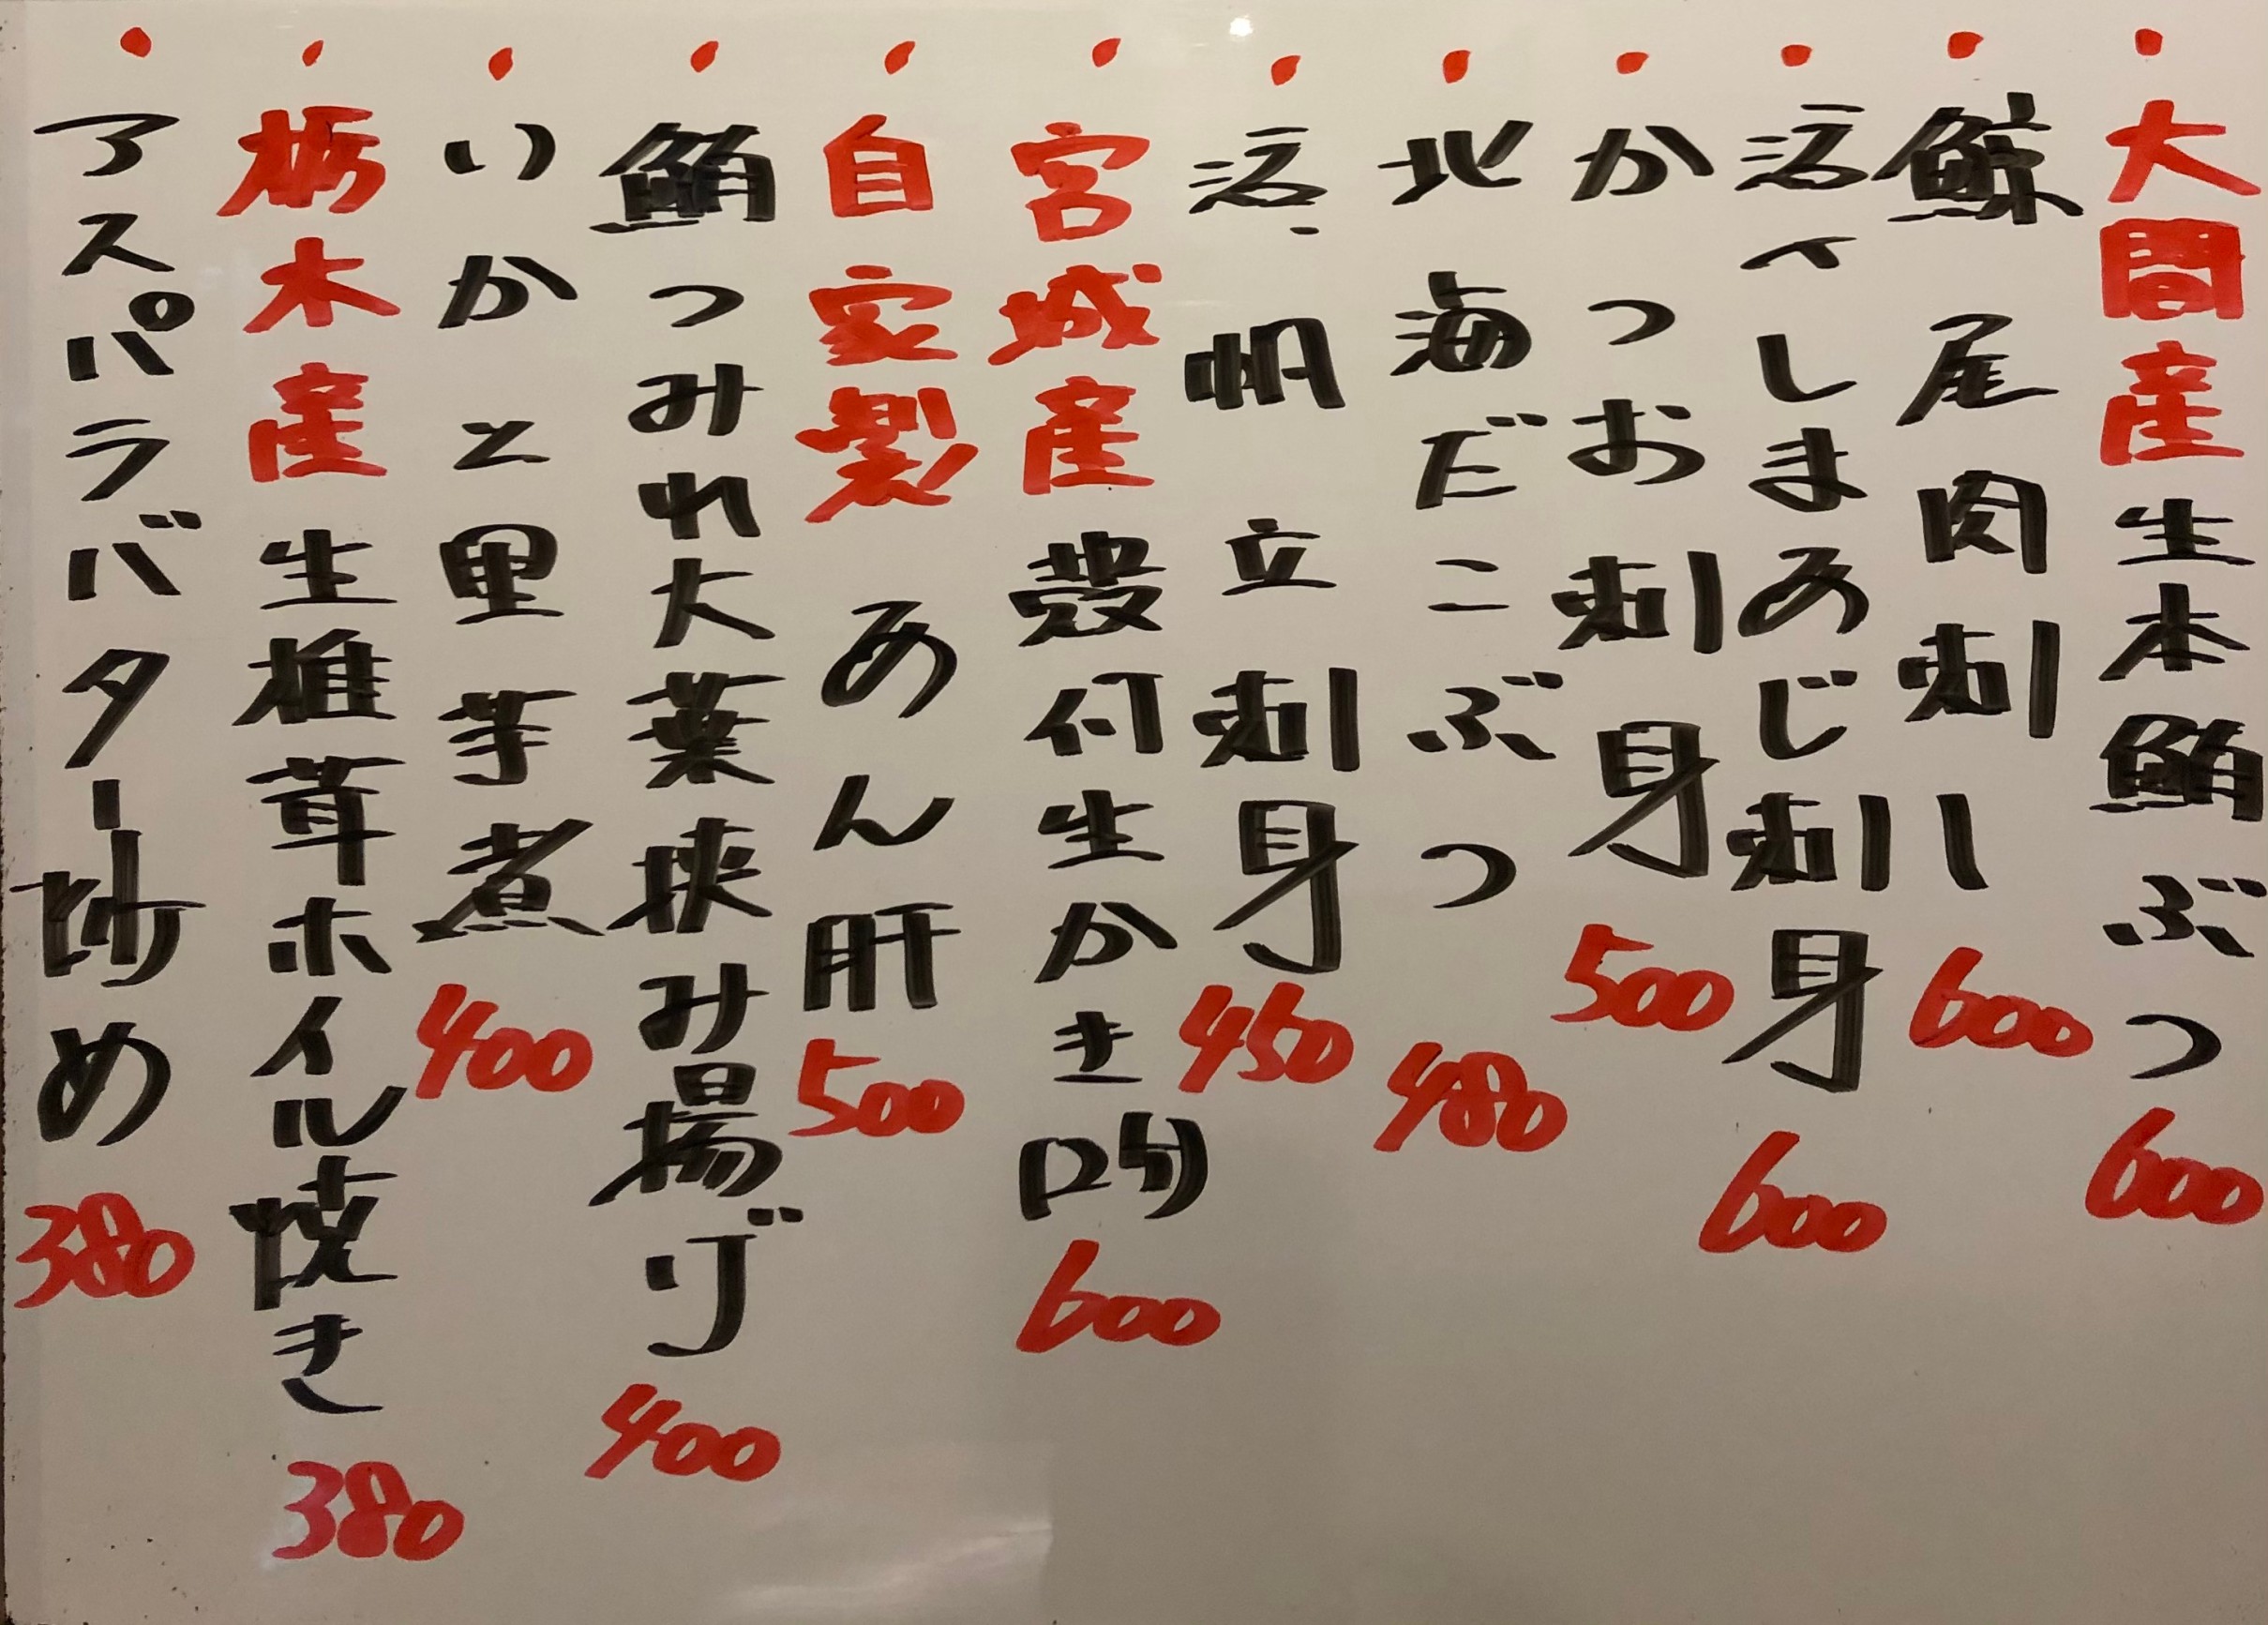 ・大間産生本鮪ぶつ 600
・鯨尾肉刺し 600
・活〆しまあじ刺身 600
・かつお刺身 500
・北海だこぶつ 480
・活帆立刺身 450
・宮城産殻付生かき 600
・自家製あん肝 500
・鮪つみれ大葉挟み揚げ 400
・いかと里芋煮 400
・栃木産生椎茸ホイル焼き 380
・アスパラバター炒め 380